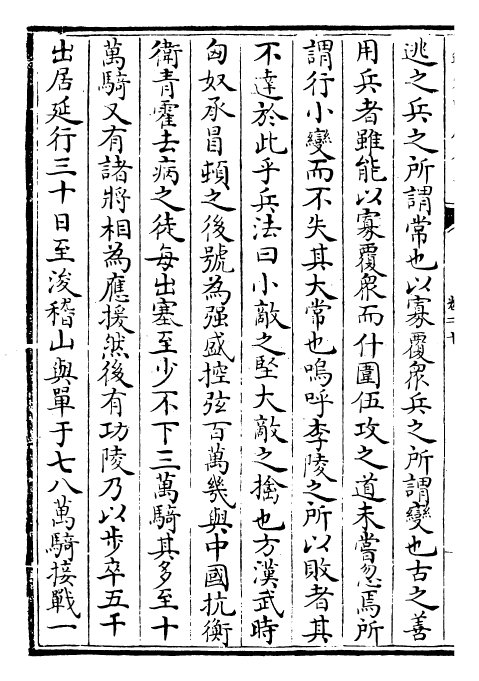 逃之兵之所謂常也以寡覆衆兵之所謂變也古之善
用兵者雖能以寡覆衆而什圍伍攻之道未嘗忽焉所
謂行小變而不失其大常也嗚呼李陵之所以敗者其
不達於此乎兵法曰小敵之堅大敵之擒也方漢武時
匈奴承冒頓之後號為强盛控弦百萬幾與中國抗衡
衛青霍去病之徒每出塞至少不下三萬騎其多至十
萬騎又有諸將相為應援然後有功陵乃以步卒五千
出居延行三十日至浚稽山與單于七八萬騎接戰一